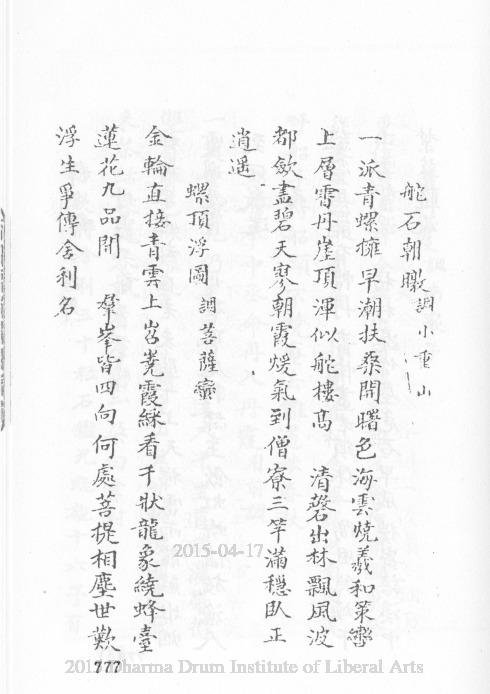 舵石朝暾 調小重山
一派青螺擁早潮扶桒開曙色海雲燒羲和策轡
上層霄丹崖頂渾似舵樓高 清磬出林飄風波
都歛盡碧天寥朝霞煖氣到僧寮三竿滿穩臥正
逍遥
螺頂浮圖 調菩薩蠻
金輪直接青雲上岧嶤霞綵看千狀龍象繞蜂臺
蓮花九品開 羣峯皆四向何處菩提相塵世歎
浮生爭傳舍利名
2015-04-17
777
Dharma Drum Institute of Liberal Arts